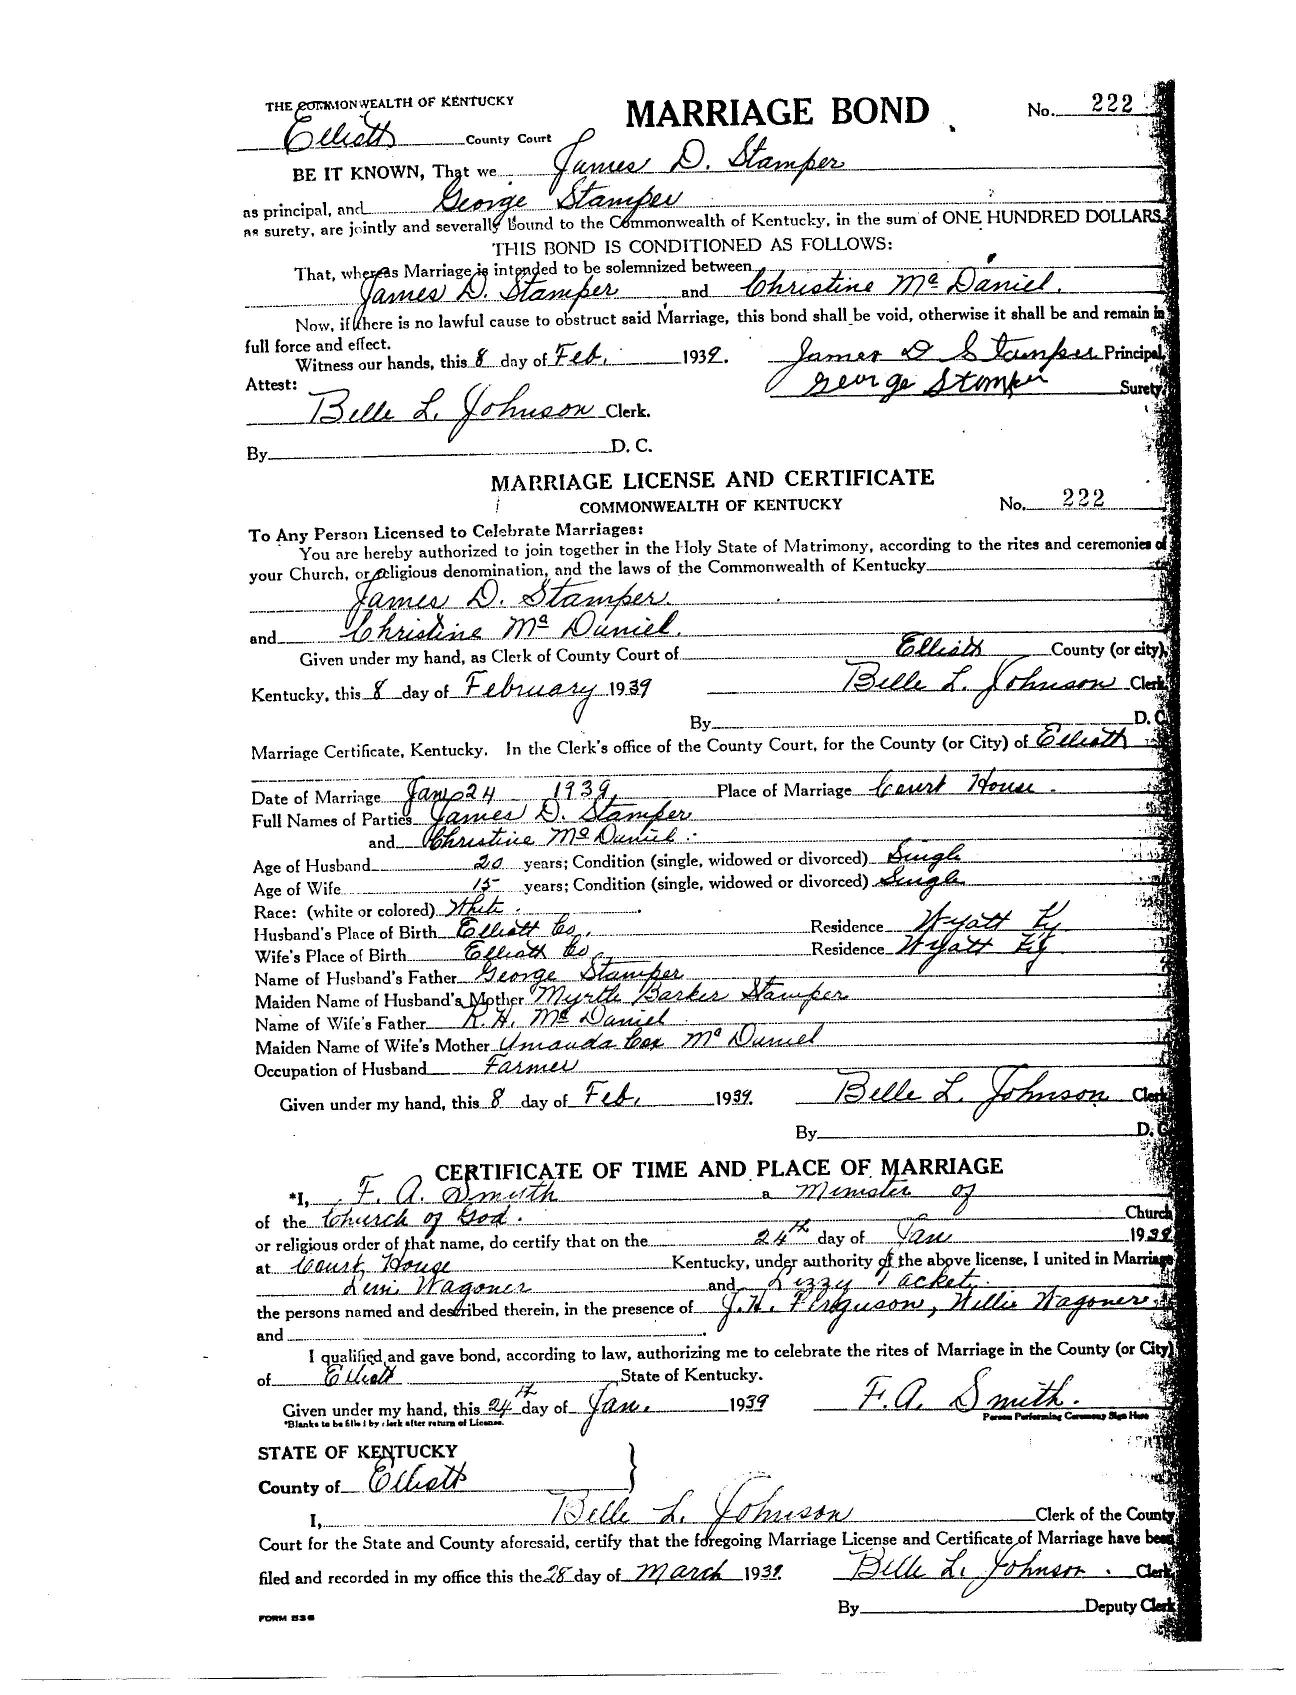 THE COMMONWEALTH OF KENTUCKY
MARRIAGE BOND
No. 222
Elliott County Court
BE IT KNOWN, That we James D. Stamper
as principal, and George Stamper
as surety, are jointly and severally bound to the Commonwealth of Kentucky, in the sum of ONE HUNDRED DOLLARS.
THIS BOND IS CONDITIONED AS FOLLOWS:
That, whereas Marriage is intended to be solemnized between
James D. Stamper and Christine McDaniel.
Now, if there is no lawful cause to obstruct said Marriage, this bond shall be void, otherwise it shall be and remain in
full force and effect.
Witness our hands, this 8 day of Feb. 1939. James D Stamper Principal,
Attest: George Stamper Surety,
Belle L. Johnson Clerk.
By D. C.
MARRIAGE LICENSE AND CERTIFICATE
COMMONWEALTH OF KENTUCKY No. 222
To Any Person Licensed to Celebrate Marriages:
You are hereby authorized to join together in the Holy State of Matrimony, according to the rites and ceremonies of
your Church, or religious denomination, and the laws of the Commonwealth of Kentucky
James D. Stamper.
and Christine McDaniel.
Given under my hand, as Clerk of County Court of Elliott County (or city),
Kentucky, this 8 day of February 1939 Belle L. Johnson Clerk
By D. C.
Marriage Certificate, Kentucky. In the Clerk's office of the County Court, for the County (or City) of Elliott
Date of Marriage Jan 24 1939 Place of Marriage Court House.
Full Names of Parties James D. Stamper
and Christine McDaniel.
Age of Husband 20 years; Condition (single, widowed or divorced) Single
Age of Wife 15 years; Condition (single, widowed or divorced) Single
Race: (white or colored) White.
Husband's Place of Birth Elliott Co. Residence Wyatt Ky
Wife's Place of Birth Elliott Co. Residence Wyatt Ky
Name of Husband's Father George Stamper
Maiden Name of Husband's Mother Myrtle Barker Stamper
Name of Wife's Father R. H. McDaniel
Maiden Name of Wife's Mother Amanda Cox McDaniel
Occupation of Husband Farmer
Given under my hand, this 8 day of Feb. 1939. Belle L. Johnson Clerk
By D. C
CERTIFICATE OF TIME AND PLACE OF MARRIAGE
*I, F. A. Smith a Minister of
of the Church of God. Church
or religious order of that name, do certify that on the 24th day of Jan 1939
at Court House Kentucky, under authority of the above license, I united in Marriage
Wagoner and Lizzy Tacket.
the persons named and described therein, in the presence of J. H. Ferguson, Willie Wagoner.
and
I qualified and gave bond, according to law, authorizing me to celebrate the rites of Marriage in the County (or City)
of Elliott State of Kentucky.
Given under my hand, this 24th day of Jan. 1939 F. A. Smith.
*Blanks to be filled by clerk after return of License. Person Performing Ceremony Sign Here
STATE OF KENTUCKY
County of Elliott
I, Belle L. Johnson Clerk of the County
Court for the State and County aforesaid, certify that the foregoing Marriage License and Certificate of Marriage have been
filed and recorded in my office this the 28 day of March 1939. Belle L. Johnson. Clerk
By Deputy Clerk
FORM 536